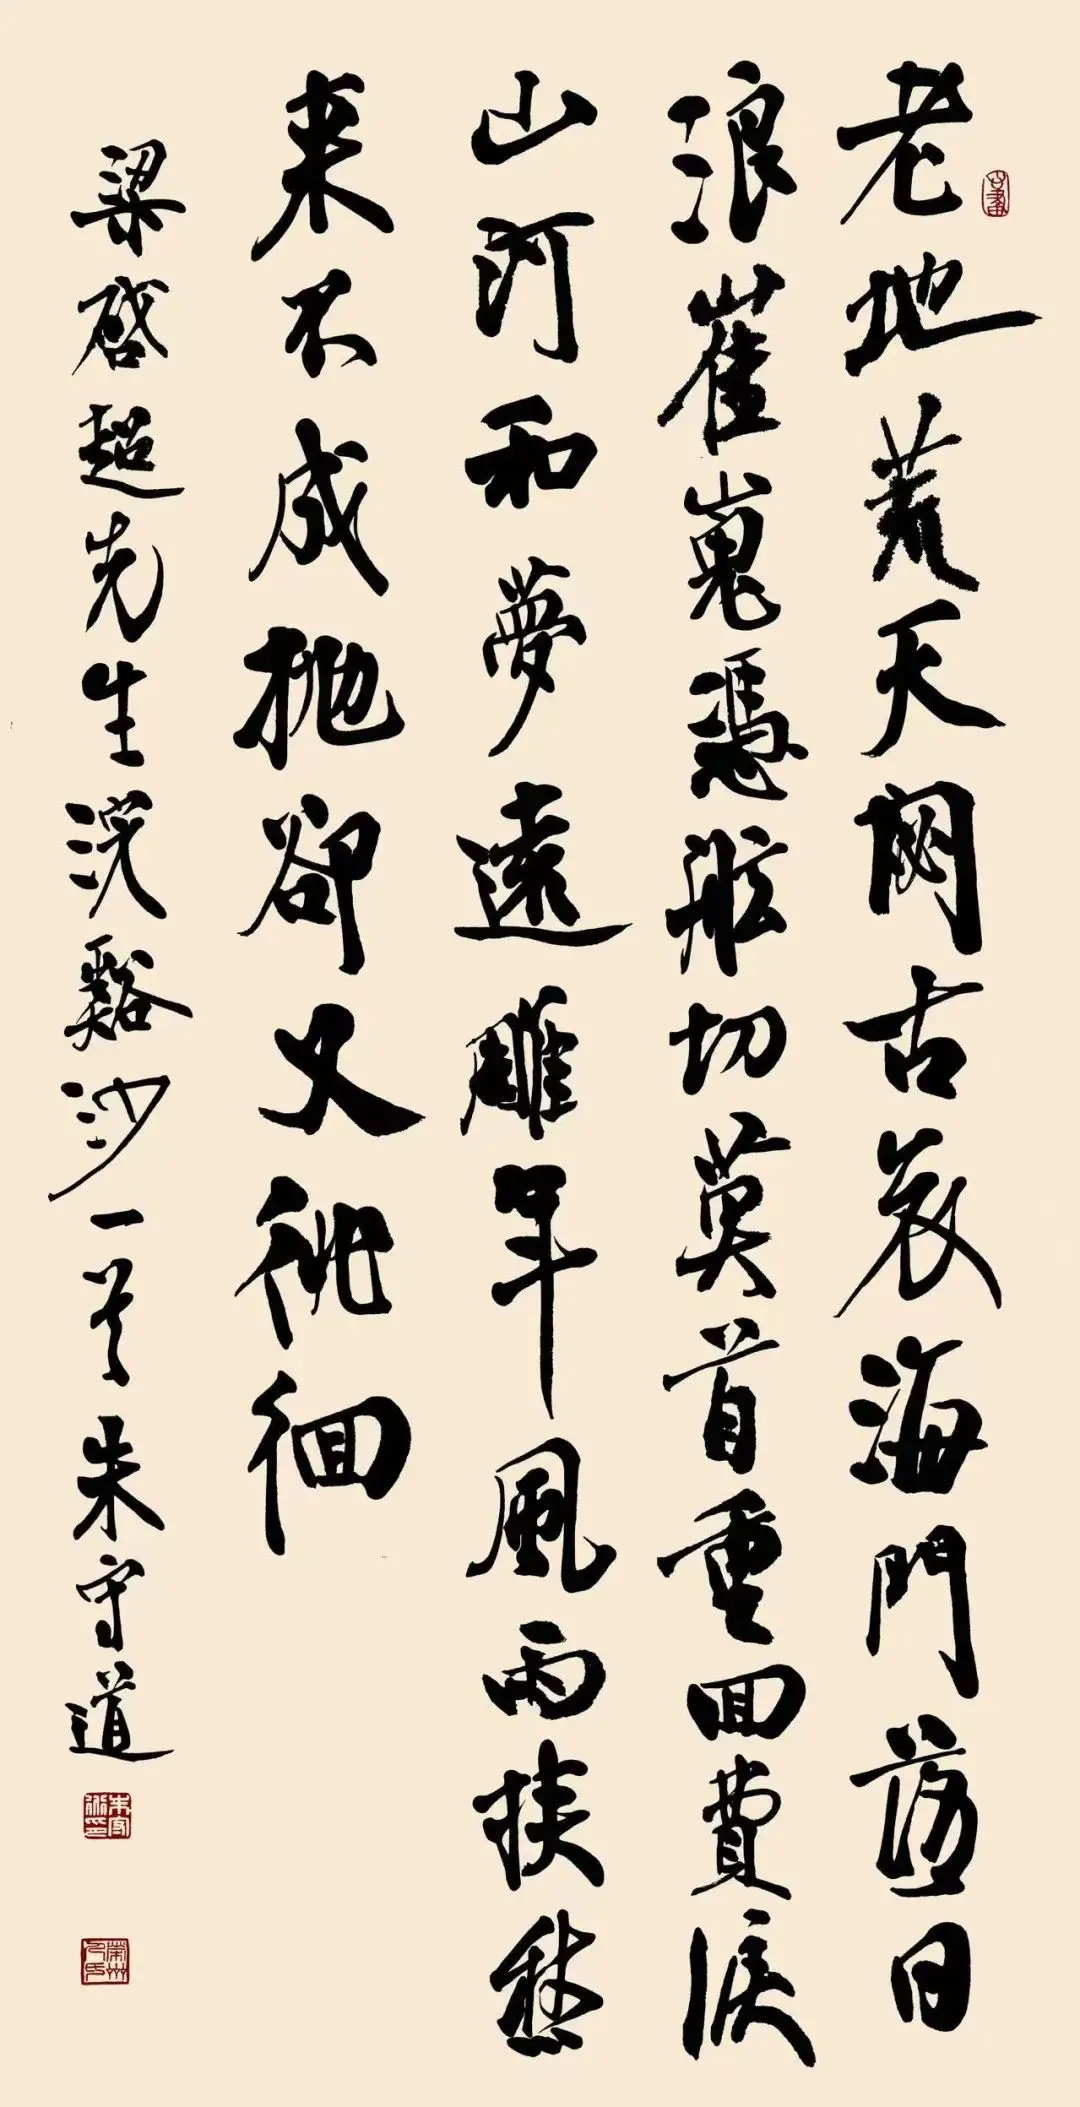 老地荒天閟古哀海門落日
浪崔嵬憑舷切莫首重回費淚
山河和夢遠雕年風雨挾愁
來不成拋卻又徘徊
梁啓超先生浣谿沙一首朱守道